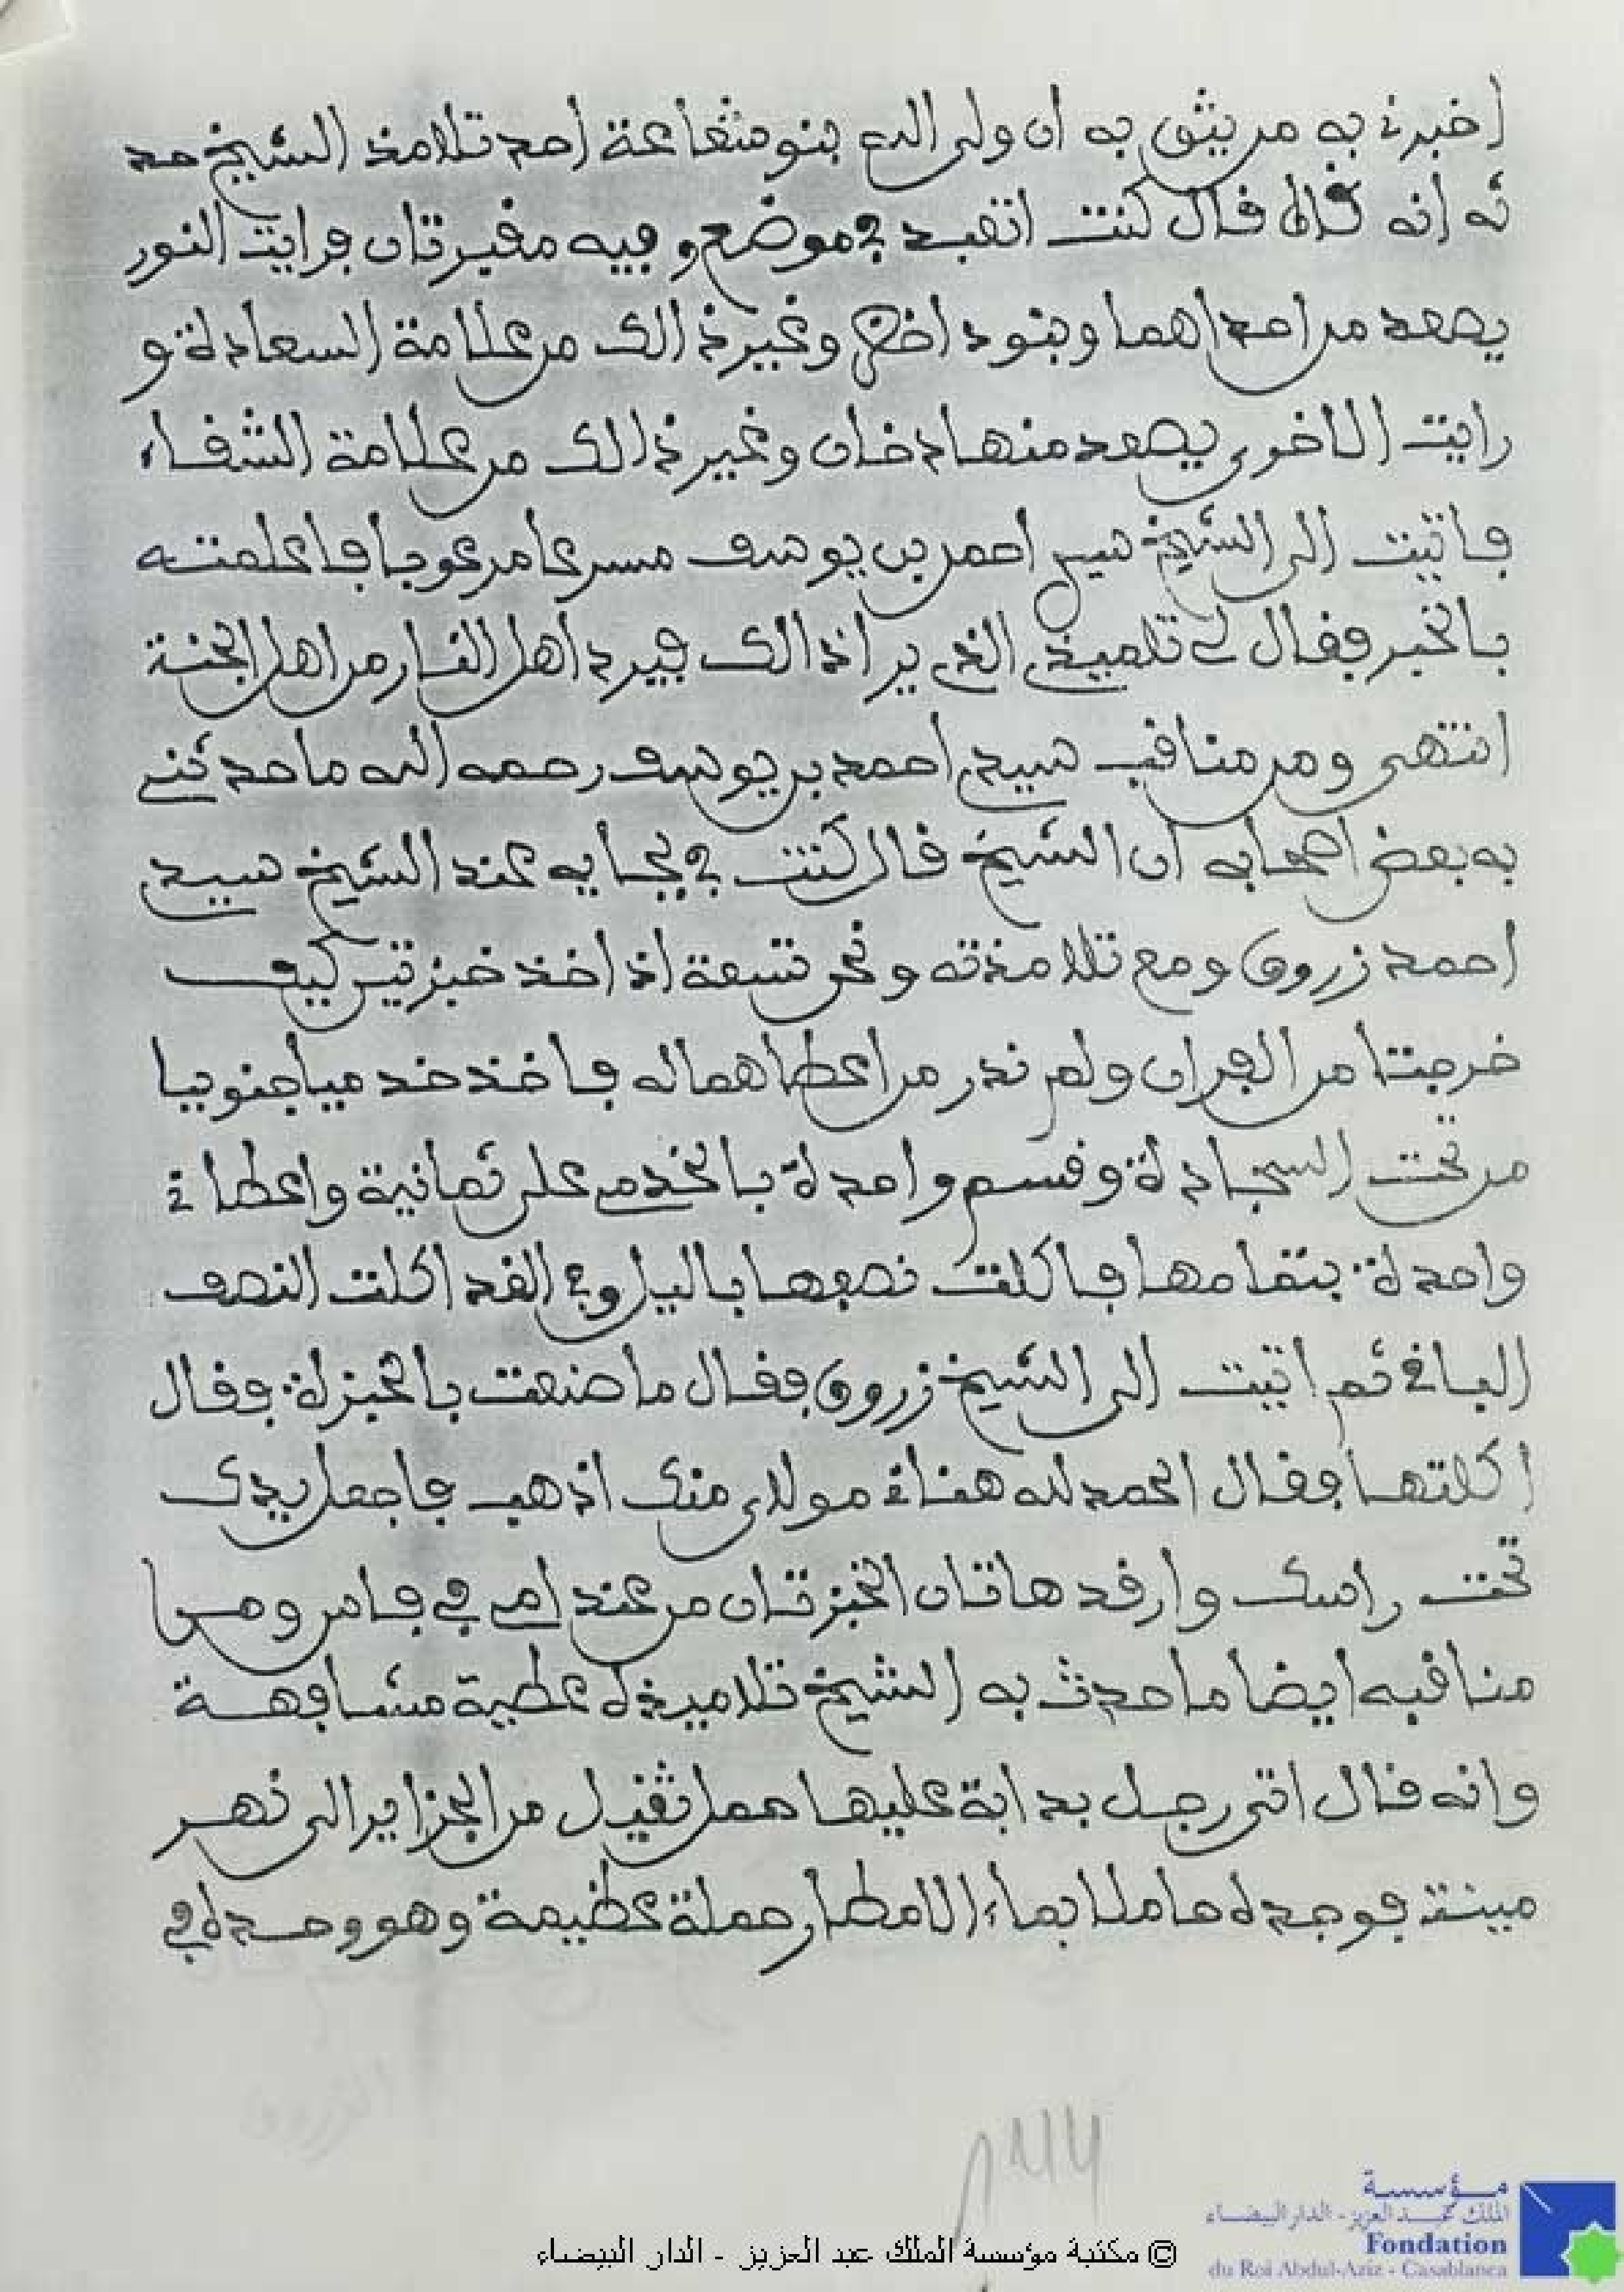 اخبرنے به من يثق به ان ولى الله بنو شفاعة احد تلامذ الشيخ حد
ثه انه كان قال كنت اتعبد في موضع وفيه مقبرتان فرايت النور
يصعد من احداهما وبنود اخضر وغير ذالك من علامة السعادة و
رايت الاخرى يصعد منها دخان وغير ذالك من علامة الشقاء
فاتيت الى الشيخ سيدي احمد بن يوسف مسرعا مرعوبا فاعلمته
بالخبر فقال لي تلميذي الذي يرا ذالك فيرد اهل النار من اهل الجنة
انتهى ومن مناقب سيدي احمد بن يوسف رحمه الله ما حدثني
به بعض اصحابه ان الشيخ قال كنت في بجايه عند الشيخ سيدي
احمد زروق ومع تلامذته ونحن تسعة اذ اخذ خبزتين كيف
خرجتا من الفران ولم ندر من اعطاهما له فاخذ خدميا جنوبيا
من تحت السجادة وقسم واحدة بالخدمي على ثمانية واعطاني
واحدة بتمامها فاكلت نصفها باليل وفي الغد اكلت النصف
الباقي ثم اتيت الى الشيخ زروق فقال ما صنعت بالخبزة فقال
اكلتها فقال الحمد لله هناني مولاي منك اذهب فاجعل يدك
تحت راسك وارفد هاتان الخبزتان من عند امي في فاس ومن
مناقبه ايضا ما حدث به الشيخ تلاميذه عطية مشافهة
وانه قال اتى رجل بدابة عليها حمل ثقيل من الجزاير الى نهر
مينة فوجده حاملا بماء الامطار حملة عظيمة وهو وحده في
© مكتبة مؤسسة الملك عبد العزيز - الدار البيضاء
مؤسسة
الملك عبد العزيز - الدار البيضاء
Fondation
du Roi Abdul-Aziz - Casablanca